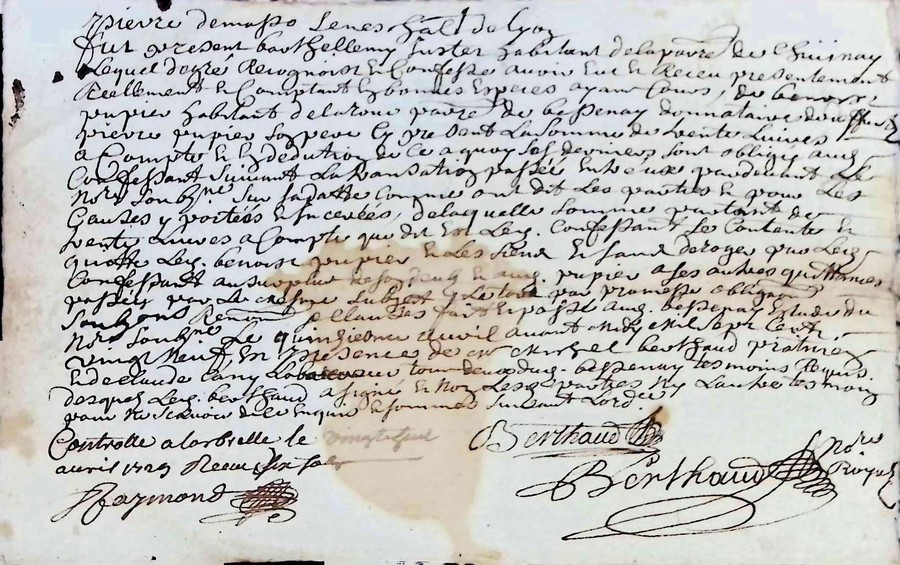 pierre demasso Seneschal de Lyon
fut present barthellemy fuster habitant delaparre de Chuisnay
Lequel degré Recognoist et Confesse avoir Eut et Receu presentement
Reellement et Comptant En bonnes Especes ayant Cours, de benoist
pupier habitant de laditte parre de bessenay donnataire de
pierre pupier son pere Cy present La somme de trente Livres
a Compte et En deduction de Ce a quoy Ses derniers sont obligés aud
Confessant Suivant La transaction passée Entre eux pardevant Le
Nore soubsne Sur sa datte Comme ont dit Les parties et pour Les
Causes y portées et Incerées, delaquelle somme partant de
trente Livres a Compte que dit Est Led. Confessant Se Contente et
quitte Led. benoist pupier et Les Siens et sans deroger par Led
Confessant au surplus de son deub et aud. pupier a ses autres quittances
passées par Le mesme Subject Le tout par promesse obligaon
Soubzons Renons et Clauses fait et passé aud. bessenay Estude du
Nore Soubsne Le quinzieme avril avant midy mil sept Cent
vingt neuf En presence de Mr Michel berthaud praticien
et de claude Cany Laboureur tous deux dud. bessenay tesmoins Requis.
desquels Led. berthaud a signé et Non Lesd. parties Ny L'autre tesmoin
pour ne sçavoir de ce Enquis et sommés suivant Lordce
Controllé a larbrelle le vingt
avril 1729 Receu six sols
Berthaud
Raymond
Berthaud Nore Royal